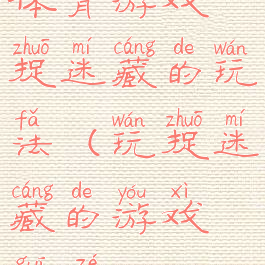 体育游戏
zhuō mí cáng de wán
捉迷藏的玩
fǎ wán zhuō mí
法（玩捉迷
cáng de yóu xì
藏的游戏
guī zé